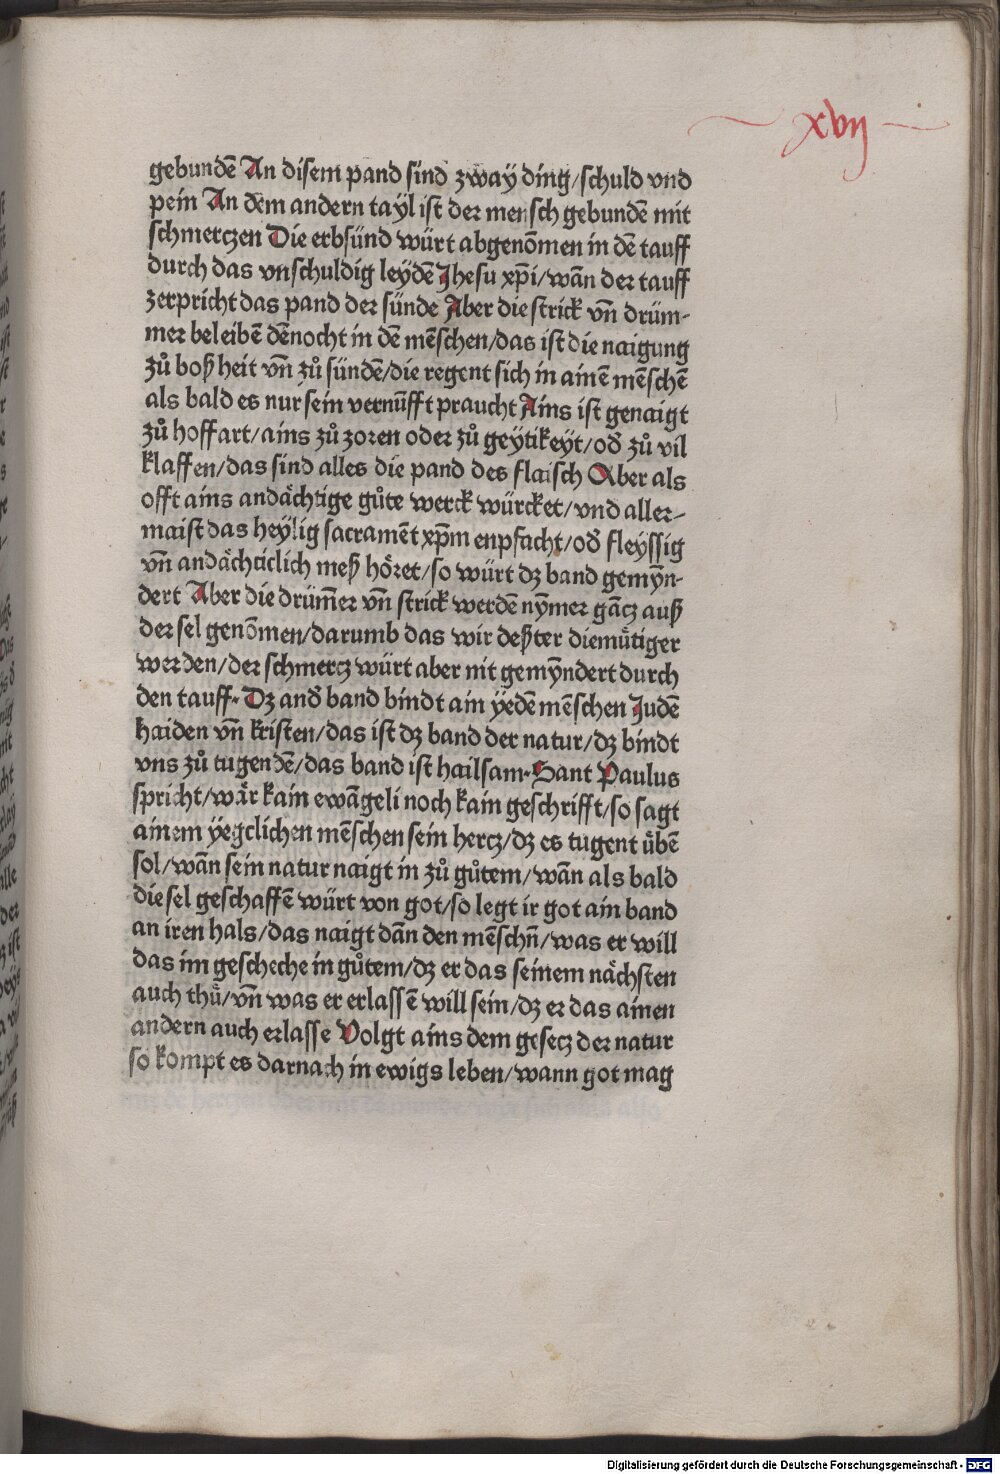 xvij
gebundē An disem pand sind zway ding/schuld vnd
pein An dem andern tayl ist der mensch gebundē mit
schmerczen Die erbsünd würt abgenōmen in dē tauff
durch das vnschuldig leydē Jhesu xp̄i/wān der tauff
zerpricht das pand der sünde Aber die strick vn̄ drüm-
mer beleibē dēnocht in dē mēschen/das ist die naigung
zů boßheit vn̄ zů sündē/die regent sich in ainē mēschē
als bald es nur sein vernūfft praucht Ains ist genaigt
zů hoffart/ains zů zoren oder zů geytikeyt/od̄ zů vil
klaffen/das sind alles die pand des flaisch Aber als
offt ains andaͤchtige gůte werck würcket/vnd aller-
maist das heylig sacramēt xp̄m enpfacht/od̄ fleyssig
vn̄ andaͤchticlich meß hoͤret/so würt dz band gemȳn-
dert Aber die drūmer vn̄ strick werdē nȳmer gācz auß
der sel genōmen/darumb das wir deßter diemuͤtiger
werden/der schmercz würt aber nit gemȳndert durch
den tauff. Dz and̄ band bindt ain ÿedē mēschen Judē
haiden vn̄ kristen/das ist dz band der natur/dz bindt
vns zů tugendē/das band ist hailsam. Sant Paulus
spricht/waͤr kain ewāgeli noch kain geschrifft/so sagt
ainem ÿegclichen mēschen sein hercz/dz es tugent uͤbē
sol/wān sein natur naigt in zů gůtem/wān als bald
die sel geschaffē würt von got/so legt ir got ain band
an iren hals/das naigt dān den mēschn̄/was er will
das im gescheche in gůtem/dz er das seinem naͤchsten
auch thuͤ/vn̄ was er erlassē will sein/dz er das ainen
andern auch erlasse Volgt ains dem gesecz der natur
so kompt es darnach in ewigs leben/wann got mag
Digitalisierung gefördert durch die Deutsche Forschungsgemeinschaft - DFG